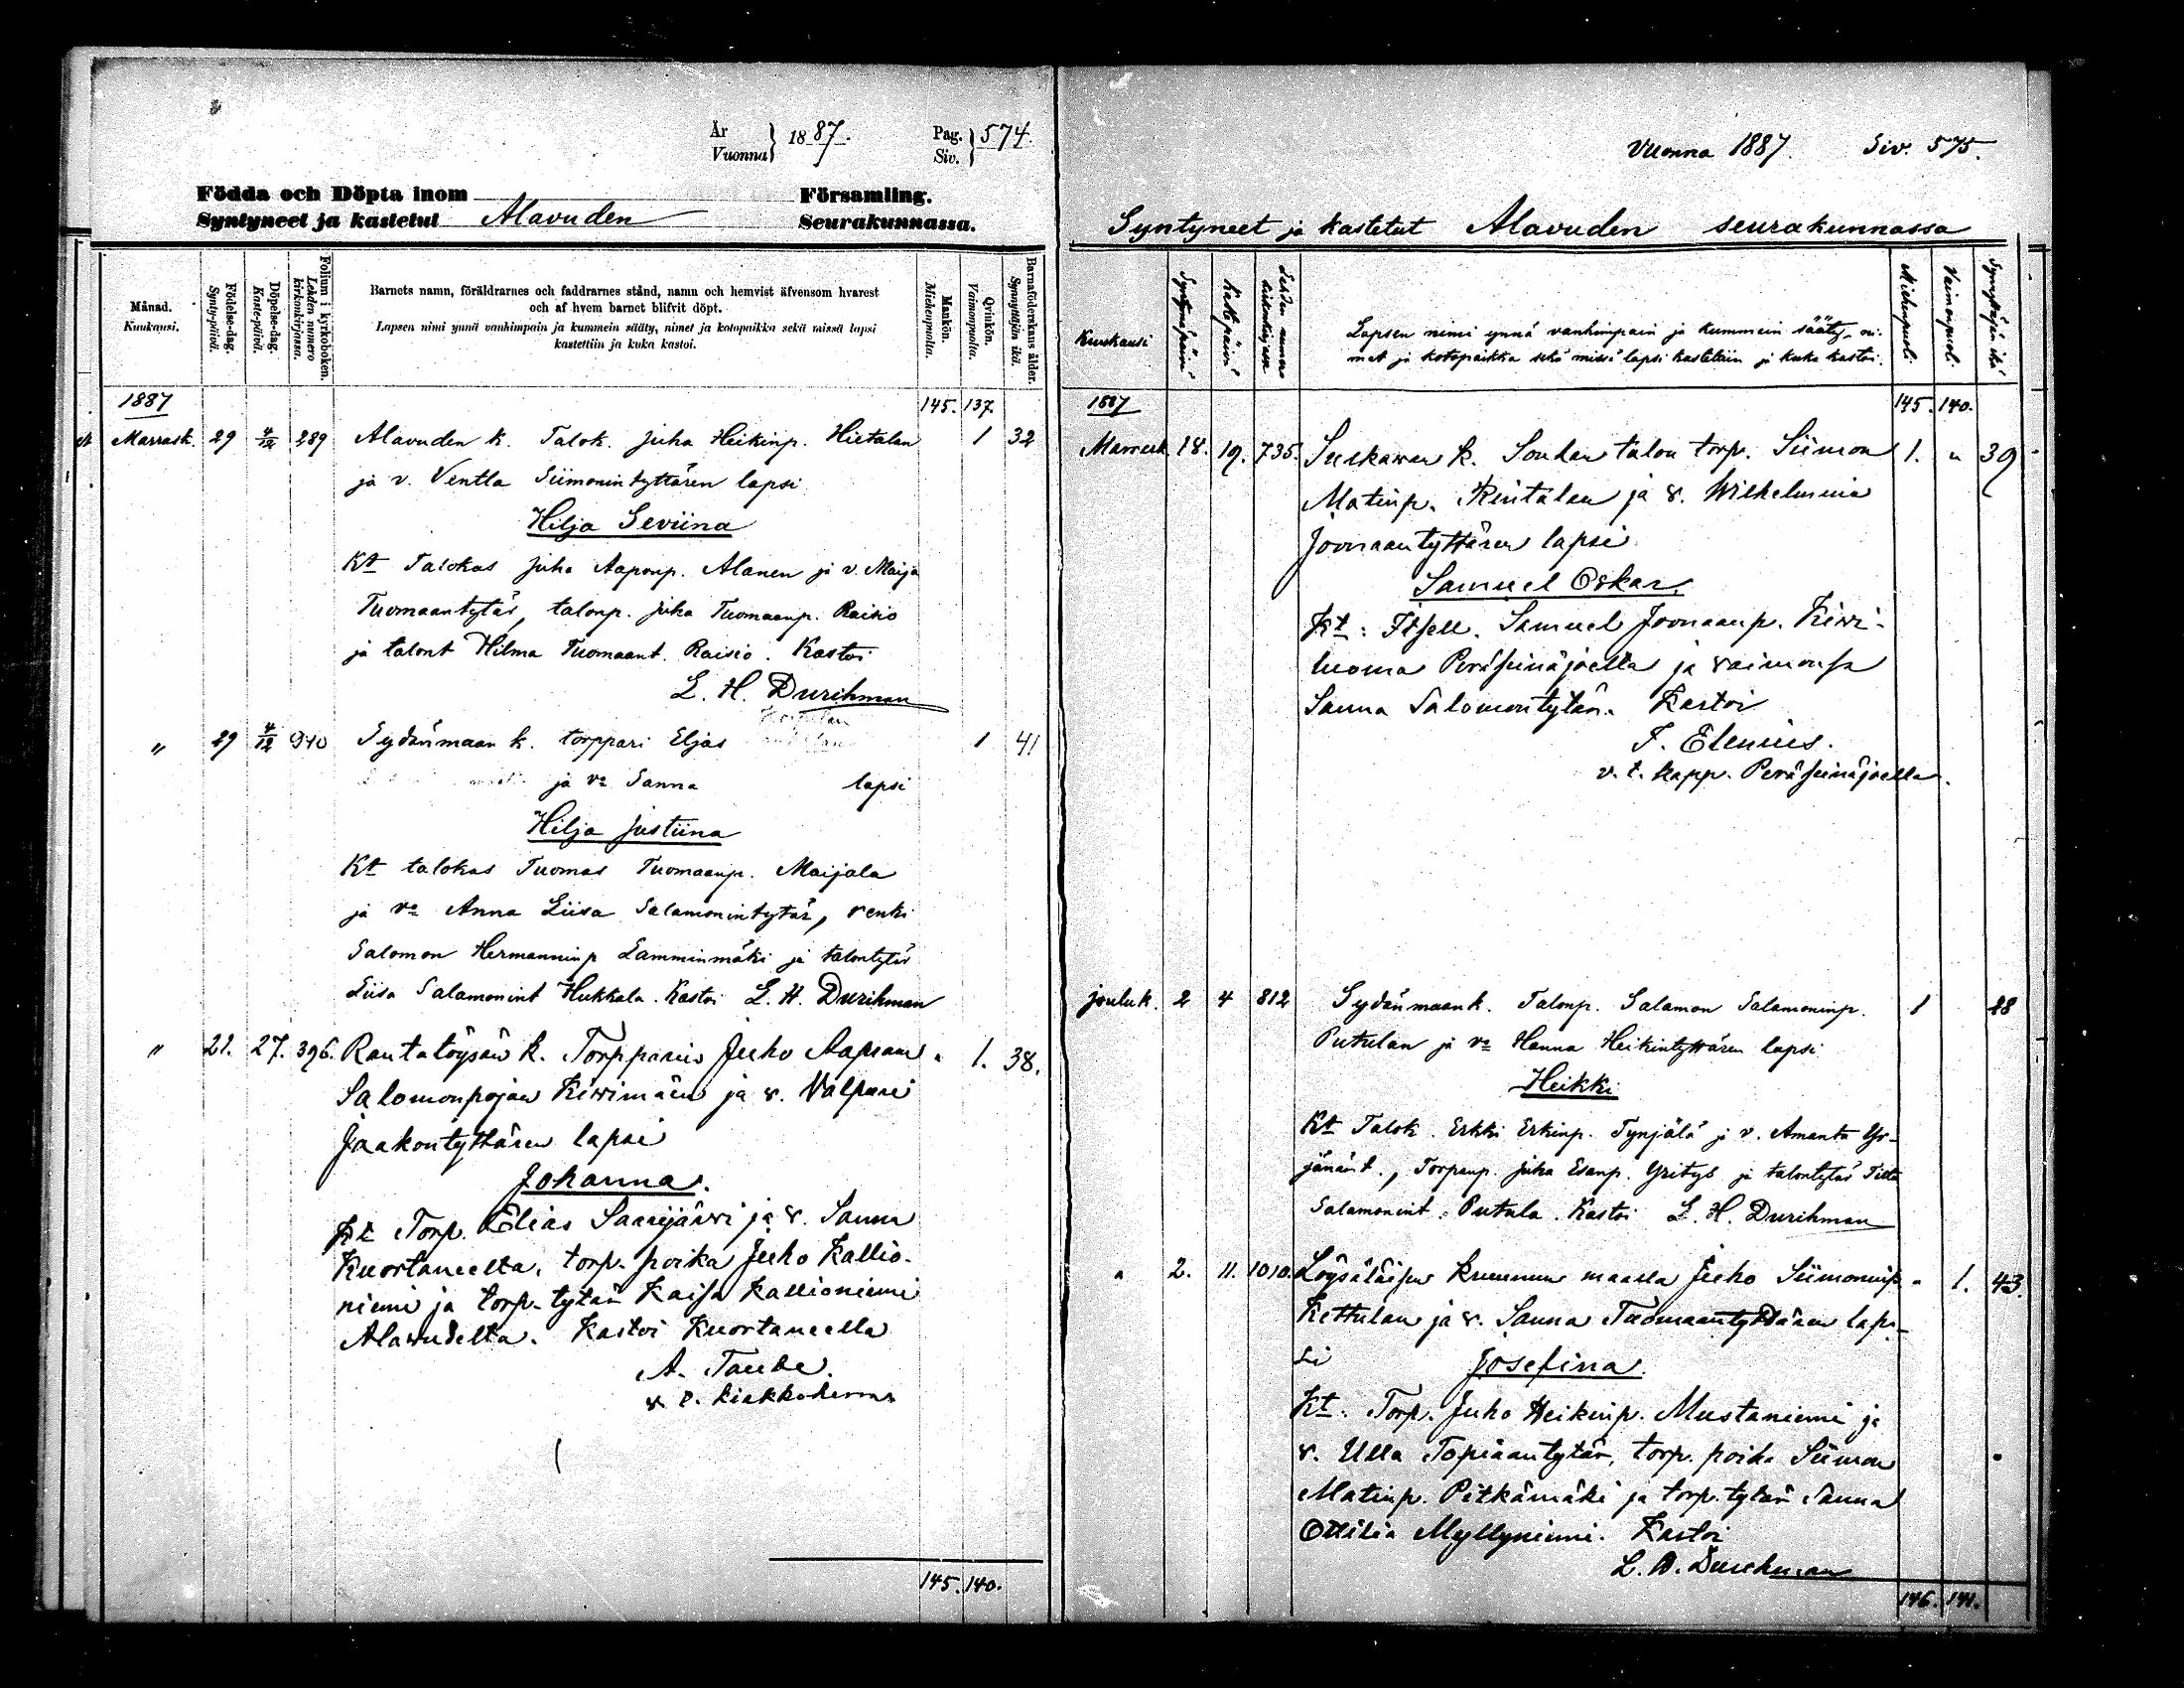 År
Vuonna
1887.
Pag.
Siv.
574.
Födda och Döpta inom Församling.
Syntyneet ja kastetut Alavuden Seurakunnassa.
Månad.
Kuukausi.
Födelse-dag.
Synty-päivä.
Döpelse-dag.
Kaste-päivä.
Folium i kyrkoboken.
Lehden numero
kirkonkirjassa.
Barnets namn, föräldrarnes och faddrarnes stånd, namn och hemvist äfvensom hvarest
och af hvem barnet blifvit döpt.
Lapsen nimi ynnä vanhimpain ja kummein sääty, nimet ja kotopaikka sekä missä lapsi
kastettiin ja kuka kastoi.
Mankön.
Miehenpuolta.
Qvinkön.
Vaimonpuolta.
Barnaföderskans ålder.
Synnyttäjän ikä.
1887 145. 137.
Marrask. 29 4/12 289 Alavuden k. Talok. Juha Heikinp. Hietalan 1 32
ja v. Ventla Siimonintyttären lapsi
Hilja Seviina
Kt Talokas Juha Aaponp. Alanen ja v. Maija
Tuomaantytär, talonp. Juha Tuomaanp. Raisio
ja talont Hilma Tuomaant. Raisio. Kastoi
L. H. Durihman
" 29 4/12 940 Sydänmaan k. torppari Eljas 1 41
ja vo Sanna lapsi
Hilja Justiina
Kt talokas Tuomas Tuomaanp. Maijala
ja vo Anna Liisa Salamonintytär, renki
Salomon Hermanninp Lamminmäki ja talontytär
Liisa Salamonint Hukkala. Kastoi L. H. Durihman
" 21. 27. 396. Rantatöysän k. Torpparin Juho Aapram " 1. 38.
Salomonpojan Kiwimäen ja v. Valpuri
Jaakontyttären lapsi
Johanna.
Kt Torp. Elias Saarijärwi ja v. Sanna
Kuortaneelta, torp. poika Juho Kallio-
niemi ja torp. tytär Kaisa Kallioniemi
Alawudelta. Kastoi Kuortaneella
A. Taube.
v. t. kirkkoherra
145. 140.
Vuonna 1887. Siv. 575.
Syntyneet ja kastetut Alavuden seurakunnassa
Kuukausi
Syntymäpäivä
Kastepäivä
Lehden numero
kirkonkirjassa
Lapsen nimi ynnä vanhimpain ja kummein sääty, ni-
met ja kotopaikka sekä missä lapsi kastettiin ja kuka kastoi.
Miehenpuol.
Vaimonpuol.
Synnyttäjän ikä
1887 145. 140.
Marrask. 18. 19. 735. k. talon torp. Siimon 1. " 39
Matinp. Rintalan ja v. Wilhelmina
Joonaantyttären lapsi
Samuel Oskar.
Kt: Itsell. Samuel Joonaanp. Kiwi-
luoma Peräseinäjoella ja vaimonsa
Sanna Salomontytär. Kastoi
F. Elenius.
v. t. kapp. Peräseinäjoella.
jouluk. 2 4 812 Sydänmaan k. Talonp. Salamon Salamoninp. 1 28
Putulan ja vo Hanna Heikintyttären lapsi
Heikki
Kt Talok. Erkki Erkinp. Tynjälä ja v. Amanta Yr-
jänänt., Torpanp. Juha Esanp. Yritys ja talontytär Tilta
Salamonint. Putula. Kastoi L. H. Durihman
" 2. 11. 1010. Löysäläisen kruunun maalla Juho Siimoninp. " 1. 43.
Kettulan ja v. Sanna Tuomaantyttären lap-
si Josefina.
Kt. Torp. Juho Heikinp. Mustaniemi ja
v. Ulla Topiaantytär, torp. poika Siimon
Matinp. Pitkämäki ja torp. tytär Sanna
Ottilia Myllyniemi. Kastoi
L. H. Durchman
146. 141.